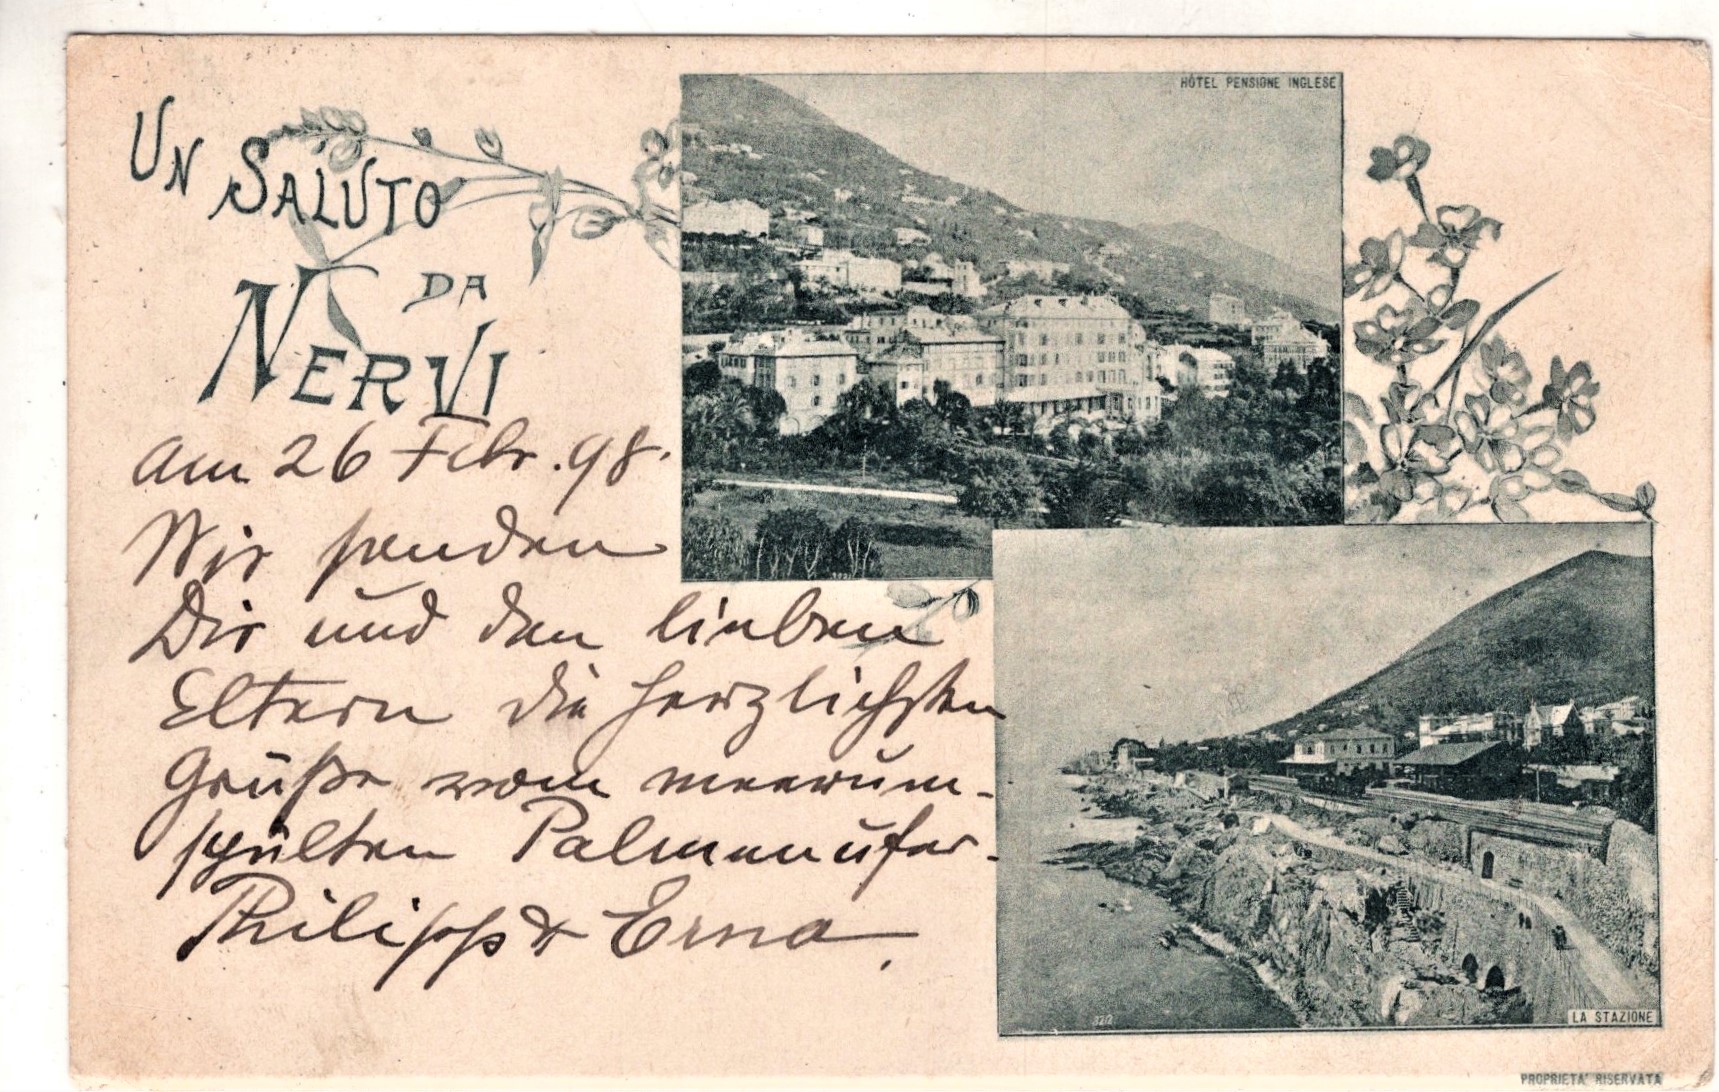 UN SALUTO
DA
NERVI
HÔTEL PENSIONE INGLESE
am 26 Febr. 98.
Wir senden
Dir und den lieben
Eltern die herzlichsten
Grüße vom meerum-
spülten Palmenufer.
Philipp & Erna.
LA STAZIONE
PROPRIETA' RISERVATA